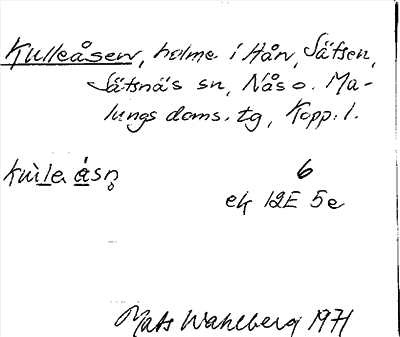 Kulleåsen, holme i Hån, Sätsen,
Sätsnäs sn, Nås o. Ma-
lungs doms. tg, Kopp. l.
kùlea ásn̥ 6
ek 12E 5e
Mats Wahlberg 1971